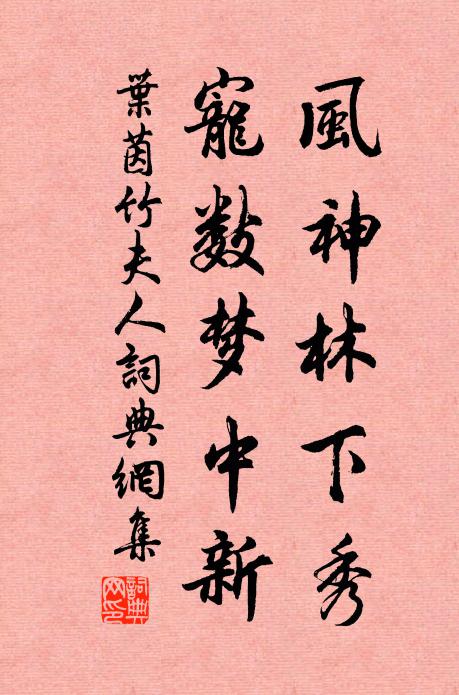 風神林下秀
寵数梦中新
葉茵竹夫人詞典網集
詞典
网印